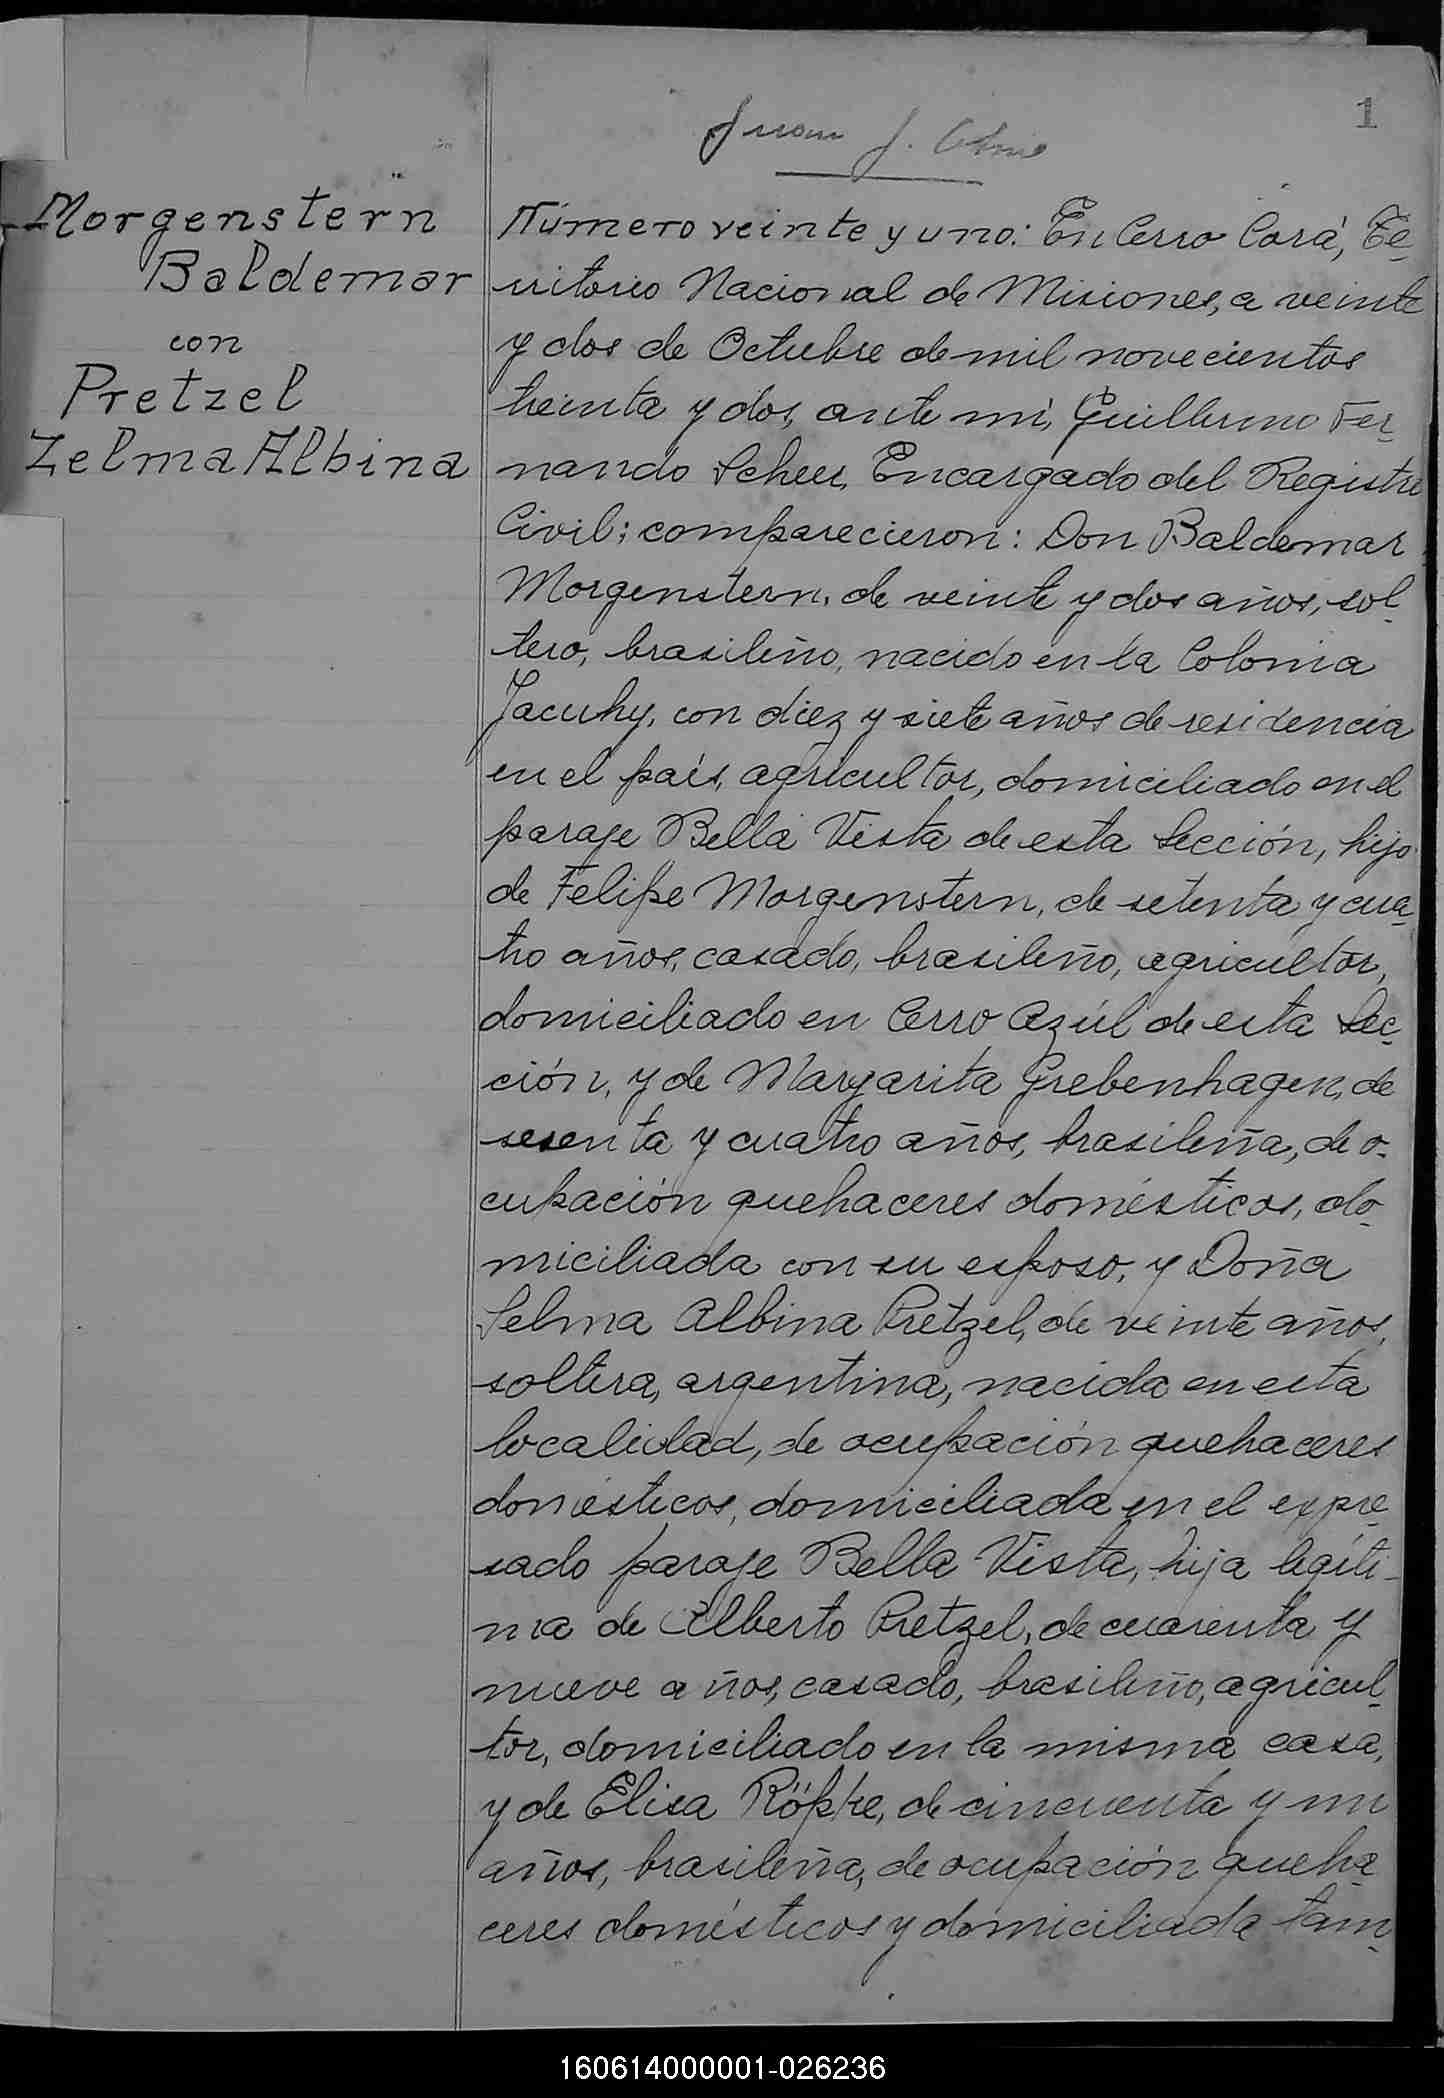 1
Juan J.
Morgenstern
Baldemar
con
Pretzel
Zelma Albina
Número veinte y uno: En Cerro Corá, Te-
rritorio Nacional de Misiones, a veinte
y dos de Octubre de mil novecientos
treinta y dos, ante mi, Guillermo Fer-
nando Scheer, Encargado del Registro
Civil; comparecieron: Don Baldemar
Morgenstern, de veinte y dos años, sol-
tero, brasileño, nacido en la Colonia
Jacuhy, con diez y siete años de residencia
en el país, agricultor, domiciliado en el
paraje Bella Vista de esta Sección, hijo
de Felipe Morgenstern, de setenta y cua-
tro años, casado, brasileño, agricultor,
domiciliado en Cerro Azúl de esta Sec-
ción, y de Margarita Grebenhagen, de
sesenta y cuatro años, brasileña, de o-
cupación quehaceres domésticos, do-
miciliada con su esposo, y Doña
Selma Albina Pretzel, de veinte años,
soltera, argentina, nacida en esta
localidad, de ocupación quehaceres
domésticos, domiciliada en el expre-
sado paraje Bella Vista, hija legíti-
ma de Alberto Pretzel, de cuarenta y
nueve años, casado, brasileño, agricul-
tor, domiciliado en la misma casa,
y de Elisa Röpke, de cincuenta y un
años, brasileña, de ocupación queha-
ceres domésticos y domiciliada tam-
160614000001-026236